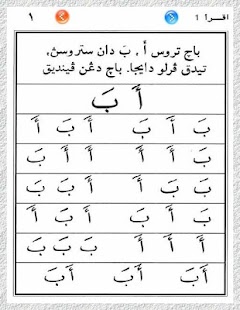 اقرأ ١ ١
باچ تروس أَ ، بَ دان ستروسڽ،
تيدق ڤرلو دايجا. باچ دڠن ڤينديق
أَ بَ
أَ بَ أَ أَ بَ أَ
بَ أَ أَ بَ أَ بَ
بَ بَ أَ أَ بَ بَ
بَ بَ أَ أَ بَ أَ
أَ أَ أَ بَ بَ بَ
أَبَ أَبَ أَبَ